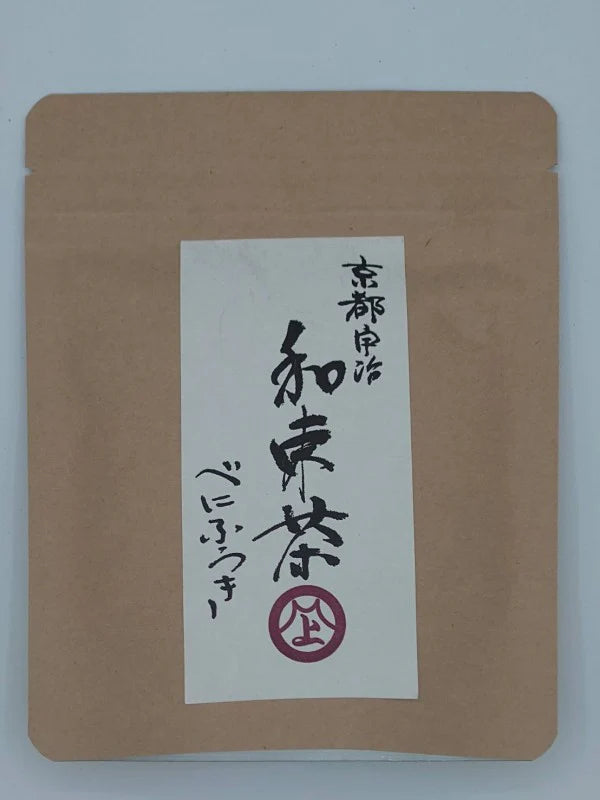 京都宇治
和束茶
べにふうき
上